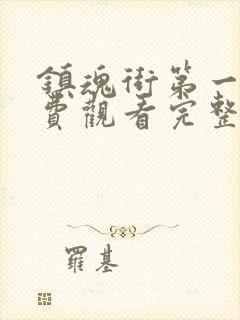 鎮魂街第一
費觀看完整
羅基